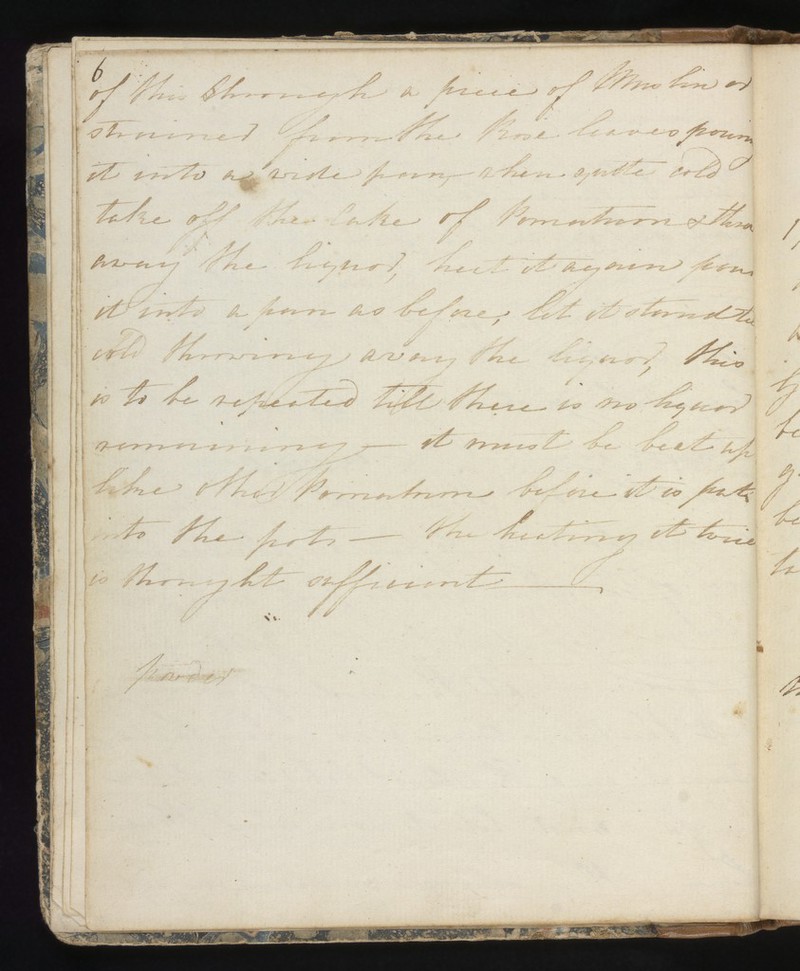 6
of this through a piece of Muslin or
strained from the Rose leaves pouring
it into a wide pan, when quite cold
take off the cake of Pomatum & throw
away the liquor, heat it again pour
it into a pan as before, let it stand till
cold throwing away the liquor, this
is to be repeated till there is no liquor
remaining — it must be beat up
like other Pomatum before it is put
into the pots — the heating it twice
is thought sufficient —
powder